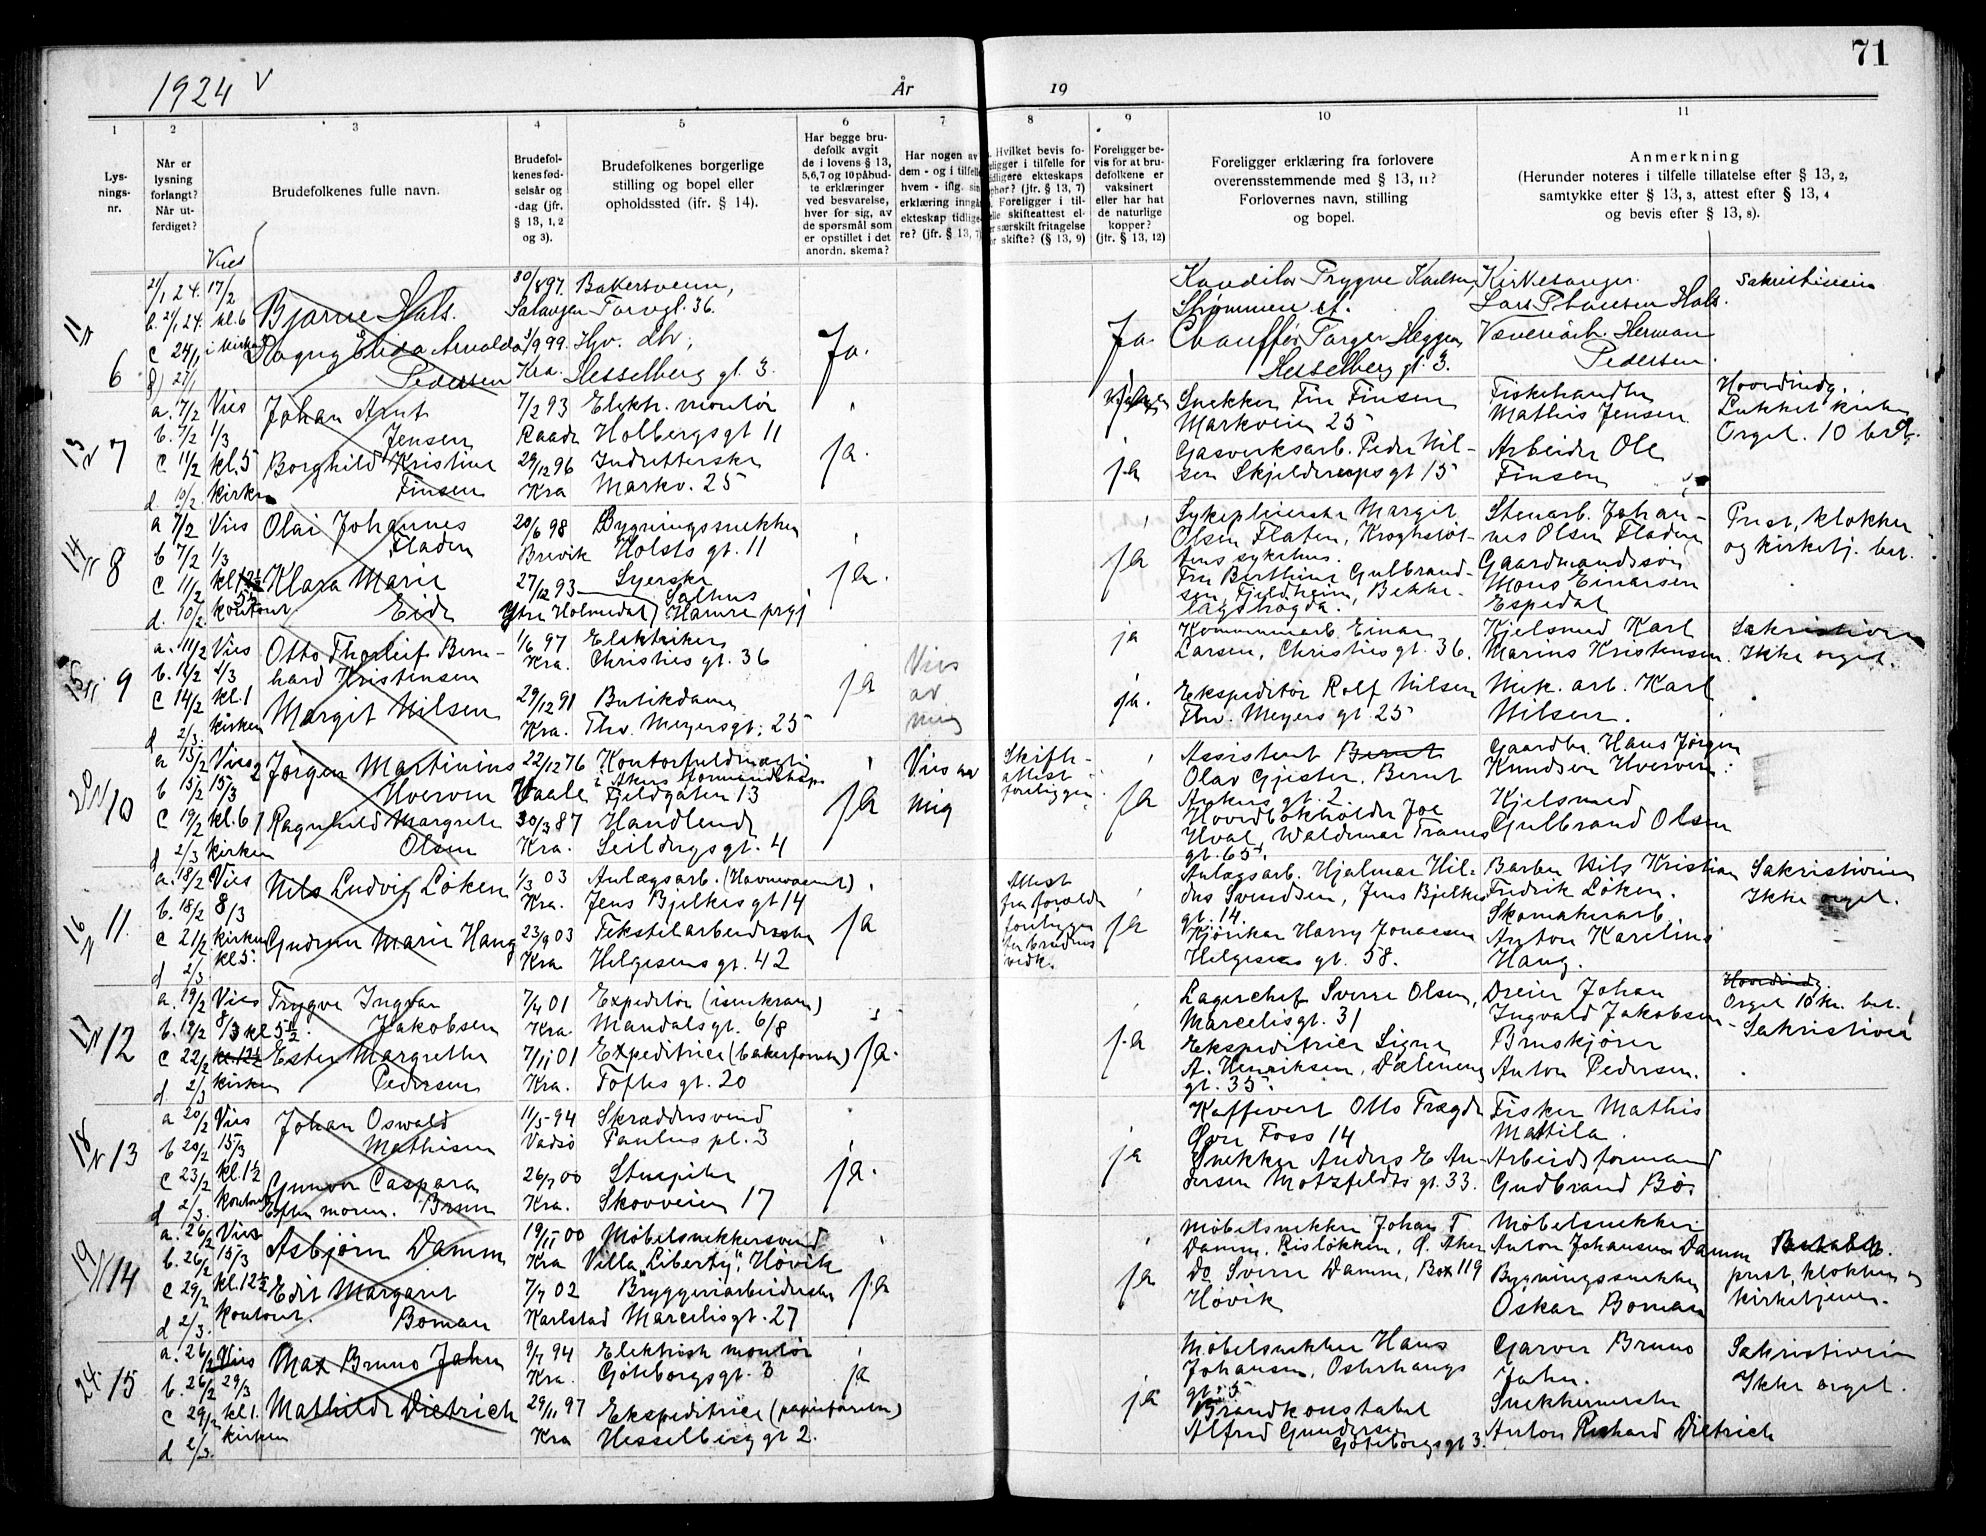 71
1924 V
År
19
1
2
3
4
5
6
7
8
9
10
11
Lys-
nings-
nr.
Når er
lysning
forlangt?
Når ut-
ferdiget?
Viet
Brudefolkenes fulle navn.
Brudefol-
kenes fød-
selsår og
-dag (jfr.
§ 13, 1, 2
og 3).
Brudefolkenes borgerlige
stilling og bopel eller
opholdssted (jfr. § 14).
Har begge bru-
defolk avgit
de i lovens § 13,
5,6,7 og 10 påbud-
te erklæringer
ved besvarelse,
hver for sig, av
de spørsmål som
er opstillet i det
anordn. skema?
Har nogen av
dem - og i tilfelle
hvem - iflg. sin
erklæring inngå
ekteskap tidlige-
re? (jfr. § 13, 7)
Hvilket bevis fo-
religger i tilfelle for
tidligere ekteskaps
ophør? (jfr. § 13, 7)
Foreligger i til-
felle skifteattest el-
særskilt fritagelse
skifte? (§ 13, 9)
Foreligger be-
vis for at bru-
defolkene er
vaksinert
eller har hat
de naturlige
kopper?
(jfr. § 13, 12)
Foreligger erklæring fra forlovere
overensstemmende med § 13, 11?
Forlovernes navn, stilling
og bopel.
Anmerkning
(Herunder noteres i tilfelle tillatelse efter § 13, 2,
samtykke efter § 13, 3, attest efter § 13, 4
og bevis efter § 13, 8).
6
21/1 24. 17/2
b. 21/1 24. kl. 6
c 24/1 i kirken
Bjarne Hals.
Pedersen
30/8 97. Bakersvenn,
Salangen Torvgt. 36.
3/9 99.
Kra. Hesselberg gt. 3.
Ja.
Ja
Kirkesanger
Lars Hals.
Chauffør
Hesselberg gt. 3.
Herman
Pedersen.
Sakristiein
7
a. 7/2 Vies
b. 7/2 1/3
c 11/2 kl. 5
d. 10/2 kirken
Johan Arnt
Jensen
Borghild Kristine
Finsen
7/2 93 Elektr. montør
Holbergsgt 11
29/12 96 Indretterske
Kra Markv. 25
ja.
ja
Snekker Fin Finsen
Markveien 25
Gasverksarb. Peder Nil-
sen Skjeldrupsgt 15
Fiskehandler
Mathis Jensen
Arbeider Ole
Finsen
Hovedindg.
Lukket kirke
Orgel. 10 bet.
8
a 7/2 Vies
b 7/2 1/3
c 11/2
d. 10/2 kontoret.
Olai Johannes
Fladen
Klara Marie
Eide
20/6 98 Bygningssnekker
Brevik Holsts gt. 11
27/12 93 Syerske
Ytre Holmedal
ja.
ja
Sykepleierske Margit
Olsen Flaten, Kroghstøt-
tens sykehus.
Fru Berthine Gulbrand-
sen, Fjeldheim, Bekke-
lagshøgda.
Stenarb. Johan-
nes Olsen Fladen
Gaardmandssøn
Mons Einarsen
Espedal
Prest, klokker
og kirketj. bet.
9
a. 11/2 Vies
b. 11/2 2/3
c 14/2 kl. 1
d 2/3. kirken
Otto Thorleif Bern-
hard Kristensen
Margit Nilsen
1/6 97 Elektriker
Kra. Christies gt. 36
29/12 91 Butikdame
Kra. Thv. Meyersgt. 25
ja
Vies
av
mig
ja
ja.
Kommunearb. Einar
Larsen, Christies gt. 36.
Ekspeditør Rolf Nilsen
Thv. Meyers gt. 25
Kjelsmed Karl
Marius Kristensen.
Mek. arb. Karl
Nilsen.
Sakristien
Ikke orgel.
10
a 15/2 Vies
b 15/2 15/3
c 19/2 kl. 6
d 2/3 kirken
Jørgen Martinius
Hverven
Ragnhild Margrete
Olsen
22/12 76 Kontorfuldmægtig
Vaale Fjeldgaten 13
30/3 87 Handlende
Kra. Seildugsgt. 4
ja
Vies av
mig
Skifte-
attest
foreligger
ja
Assistent Bernt
Olav Gjester, Bernt
Ankers gt. 2
Hovedbokholder Joe
Hval, Waldemar Tranes
gt. 65.
Gaardbr. Hans Jørgen
Knudsen Hverven.
Kjelsmed
Gulbrand Olsen
11.
a. 18/2 Vies
b. 18/2 8/3
c 21/2 kirken
d 2/3. kl 5.
Nils Ludvig Løken
Gudrun Marie Haug
1/3 03 Anlægsarb. (Havnevæsenet)
Kra. Jens Bjelkes gt 14
23/9 03 Tekstilarbeiderske
Kra Helgesens gt. 42
ja
Attest
fra foreldre
foreligger
ja
Anlægsarb. Hjalmar Hil-
dus Svendsen, Jens Bjelkes
gt. 14.
Kjørekar Harry Jonassen
Helgesens gt. 58.
Barber Nils Kristian
Fredrik Løken.
Skomakerarb.
Anton Karelius
Haug.
Sakristiein
Ikke orgel.
12
a. 19/2 Vies
b. 19/2 8/3 kl 5 1/2.
c 22/2 kl. 12 1/2
d. 2/3 kirken
Trygve Ingvar
Jakobsen
Ester Margrethe
Pedersen
7/4 01 Expeditør (isenkram)
Kra. Mandalsgt. 6/8
7/11 01 Expeditrice (bakerforretn.)
Kra. Toftes gt. 20
ja.
ja
Lagerchef Sverre Olsen,
Marcelisgt. 31
Ekspeditrice Signe
A. Henriksen, Dælenens
gt. 35.
Dreier Johan
Ingvald Jakobsen
Bruskjører
Anton Pedersen.
Hovedindg.
Orgel 10 kr. bet.
Sakristiein
13
a 20/2 Vies
b 20/2 15/3
c 23/2 kl. 1 1/2
d 2/3. kontoret
Johan Oswald
Mathisen
Gunvor Caspara
Bruun
Efter moren.
11/5-94 Skræddersvend
Vadsø Paulus pl. 3
26/7 00 Stuepike
Kra. Skovveien 17
ja.
ja
Kaffevert Otto Trægde
Øvre Foss 14
Snekker Anders E An-
dersen Motzfeldts gt. 33.
Fisker Mathis
Mattila.
Arbeidsformand
Gudbrand Bøe
14
a. 26/2 Vies
b. 26/2 15/3
c 29/2 kl. 12 1/2
d 2/3. kontoret.
Asbjørn Damm
Edit Margaret
Boman
19/11 00 Møbelsnekkersvend
Kra Villa "Liberty", Høvik
7/7 02 Bryggeriarbeiderske
Karlstad Marcelisgt. 27
ja
ja
Møbelsnekker Johan T
Damm. Bisløkken, Ø. Aker
Do Sverre Damm, Box 119
Høvik
Møbelsnekker
Anton Johansen Damm
Bygningssnekker
Oskar Boman
prest, klokker og
kirketjener.
15
a. 26/2 Vies
b. 26/2 29/3
c 29/2 kl. 1.
d 2/3. kirken
Max Bruno Jahn
Mathilde Dietrich
9/7 94 Elektrisk montør
Kra. Göteborgsgt. 3
29/11 97 Ekspeditrice (papirforretn.)
Kra Hesselberg gt 2.
ja
ja
Møbelsnekker Hans
Johansen, Osterhaugs
gt. 5
Brandkonstabel
Alfred Gundersen
Göteborgsgt 3.
Garver Bruno
Jahn.
Snekkermester
Anton Richard Dietrich
Sakristiein
Ikke orgel.